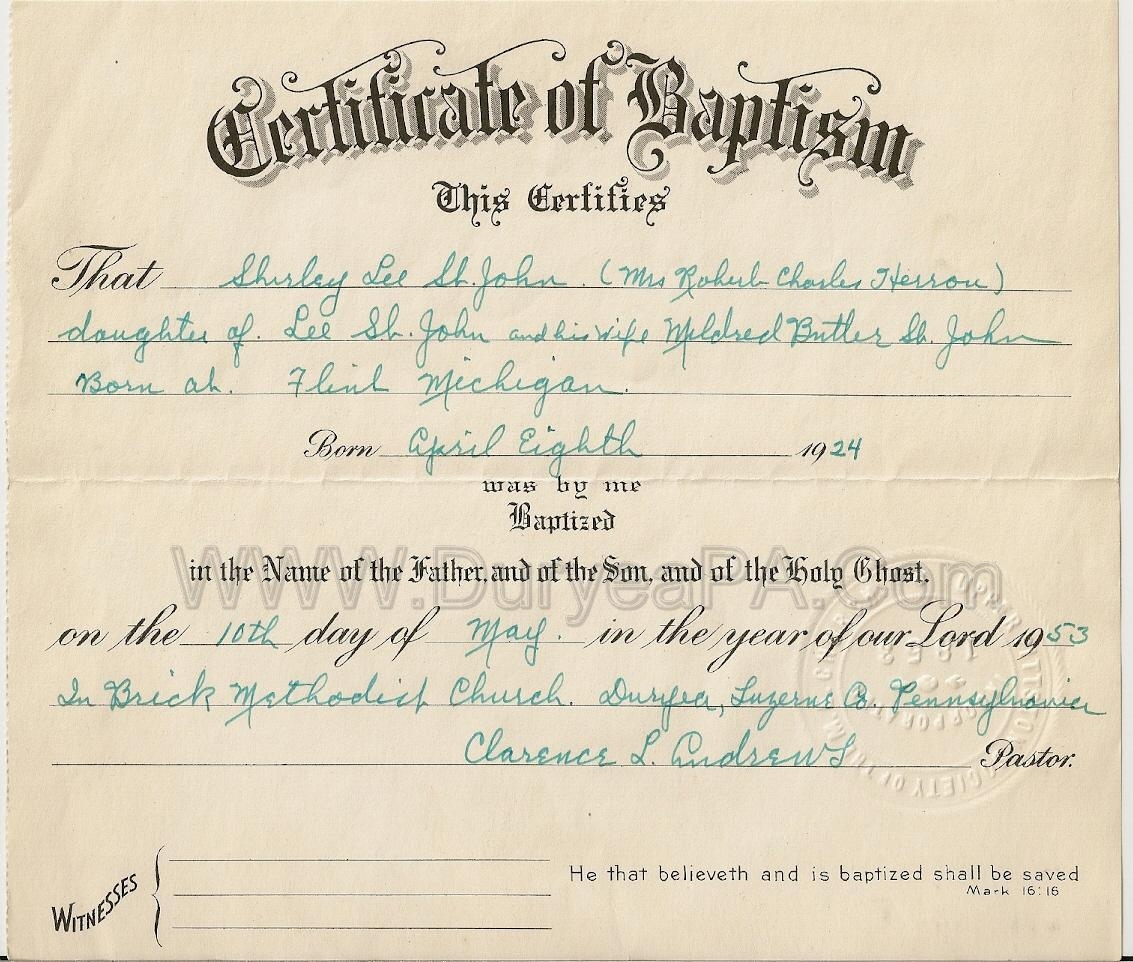 Certificate of Baptism
This Certifies
That Shirley Lee St. John (Mrs Robert Charles Herron)
daughter of. Lee St. John and his wife Mildred Butler St. John
Born at. Flint Michigan.
Born April Eighth 1924
was by me
Baptized
WWW.DuryeaPA.Com
in the Name of the Father, and of the Son, and of the Holy Ghost.
on the 10th day of May. in the year of our Lord 1953
In Brick Methodist Church. Duryea, Luzerne Co., Pennsylvania
Clarence L. Andrews Pastor.
WITNESSES
He that believeth and is baptized shall be saved
Mark 16:16